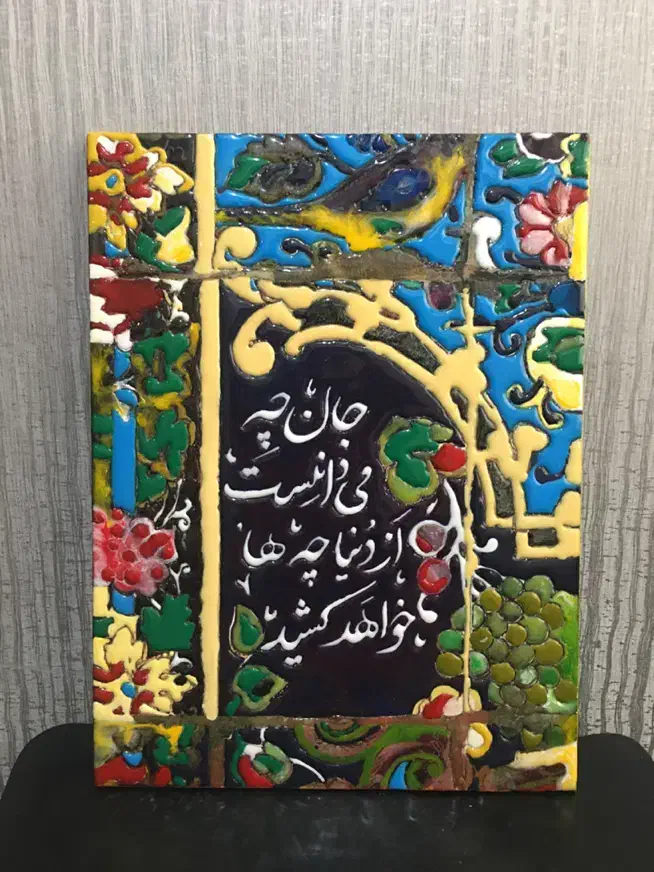 جان چه
می دانست
از دنیا چه ها
خواهد کشید